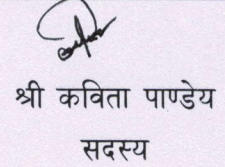 श्री कविता पाण्डेय
सदस्य